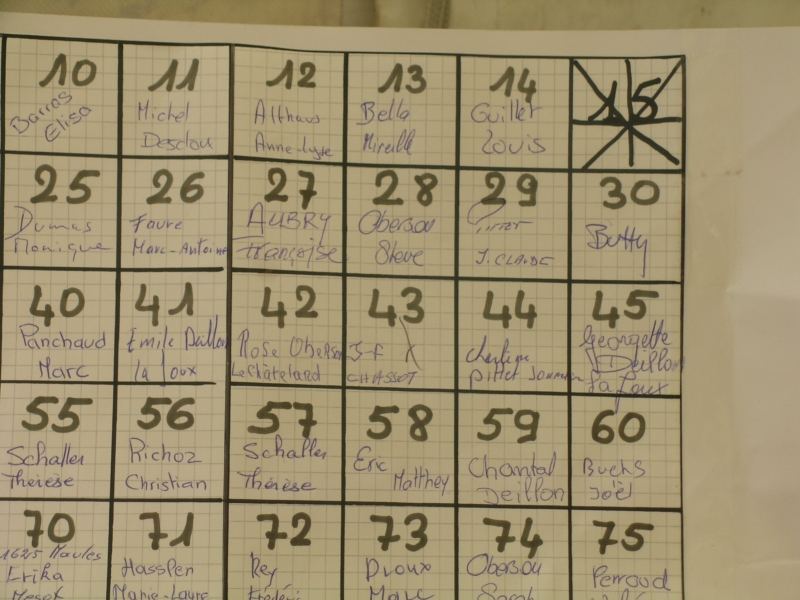 10 11 12 13 14 15
Barras Michel Althaus Bella Guillet
Elisa Anne-Lyse Mireille Louis
25 26 27 28 29 30
Dumas Favre AUBRY Oberson
Monique Marc-Antoine Françoise Steve J. CLAUDE Butty
40 41 42 43 44 45
Panchaud Emile Rose Oberson J-F Georgette
Marc la Joux Le Châtelard CHASSOT Pittet Deillon
La Joux
55 56 57 58 59 60
Schaller Richoz Schaller Eric Chantal Buchs
Thérèse Christian Thérèse Matthey Deillon Joël
70 71 72 73 74 75
1625 Maules
Erika Rey Droux Oberson Perroud
Marie-Laure Frédéric Marc Sarah